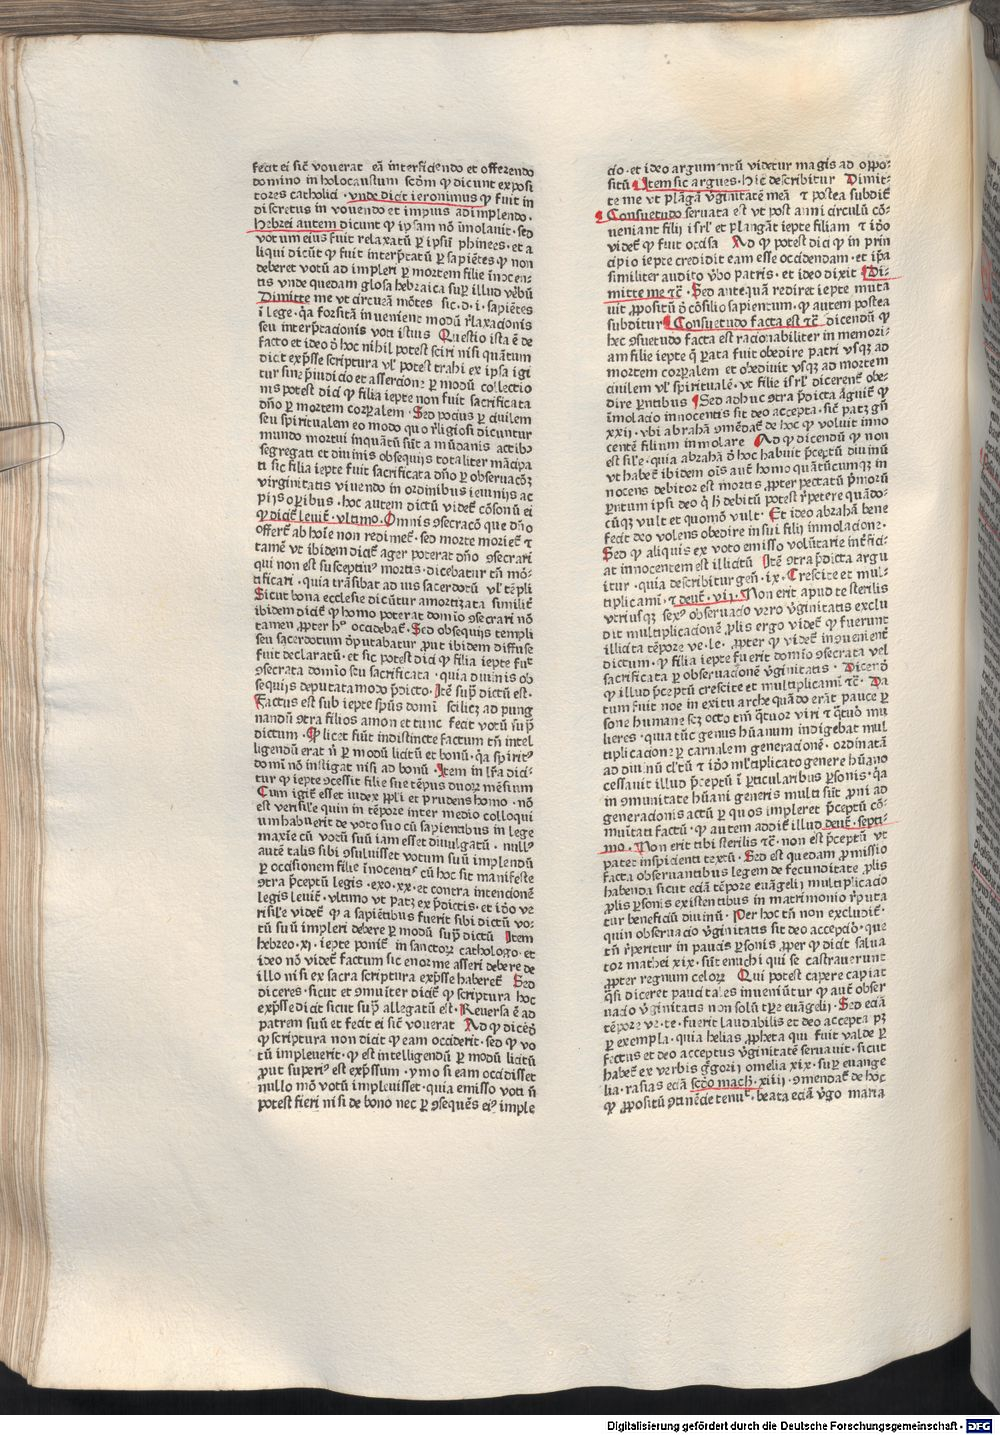 fecit ei sic̄ vouerat eā interficiendo et offerendo
domino in holocaustum sctōm ꝙ dicunt exposi
tores catholici · vnde dicit ieronimus ꝙ fuit in
discretus in vouendo et impius adimplendo ·
hebrei autem dicunt ꝙ ip̄sam nō īmolauit · sed
votum eius fuit relaxatū ꝑ ipsū phinees · et a
liqui dicūt ꝙ fuit interp̄tatū ꝑ sapiētes ꝙ non
deberet votū ad impleri ꝑ mortem filie īnocen-
tis vnde quedam glosa hebraica suꝑ illud v̄bū
Dimitte me vt circueā mōtes sic · d · i · sapiētes
ī lege · q̄a forsitā inuenient modū r̄laxacionis
seu interp̄tacionis voti istius Questio ista ē de
facto et ideo ō hoc nihil potest sciri nisi quātum
dicit exp̄sse scriptura vl̄ potest trahi ex ipsa igi
tur sine p̄iudicio et assercione ꝑ modū collectio
nis potest dici ꝙ filia iepte non fuit sacrificata
dn̄o ꝑ mortem corꝑalem · Sed pocius ꝑ ciuilem
seu spiritualem eo modo quo r̄ligiosi dicuntur
mundo mortui inquātū sūt a mūdanis actibꝰ
segregati et diuinis obsequijs totaliter mācipa
ti sic filia iepte fuit sacrificata dn̄o ꝑ obseruacōꝫ
virginitatis viuendo in ordinibus ieiunijs ac
pijs oꝑibus · hoc autem dictū videt̄ cōsonū ei
ꝙ dicit̄ leuit̄ · vltimo · Omnis ↄsecracō que dn̄o
offert̄ ab hoīe non redimet̄ · sed morte moriet̄ ⁊
tamē vt ibidem dicit̄ ager poterat dn̄o ↄsecrari
qui non est susceptiuꝰ mortis · dicebatur tn̄ mō-
tificari · quia trāsibat ad ius sacerdotū vl̄ tēpli
Sicut bona ecclesie dicūtur amortizata similit̄
ibidem dicit̄ ꝙ homo poterat domio ↄsecrari nō
tamen ꝓpter hº occidebat̄ · Sed obsequijs templi
seu sacerdotum ōputabatur ꝓut ibidem diffuse
fuit declaratū · et sic potest dici ꝙ filia iepte fuit
ↄsecrata domio seu sacrificata · quia diuinis ob
sequijs deputata modo p̄dicto · Itē sup̄ dictū est ·
Factus est sub iepte spūs domī scilicꝫ ad pung
nandū ↄtra filios amon et tunc fecit votū sup̄
dictum · ꝙ licet fuit indistincte factum tn̄ intel
ligendū erat n̄ ꝑ modū licitū et bonū · q̄a spiritꝰ
domī nō īnstigat nisi ad bonū · Item in lr̄a dici-
tur ꝙ iepte ↄcessit filie sue tēpus duoꝝ mēsium
Cum igit̄ esset iudex ꝓpli et prudens homo · nō
est verisil̄e quin in tēpore inter medio colloqui
um habuerit de voto suo cū sapientibus in lege
maxīe cū votū suū iam esset diuulgatū · nullꝰ
autē talis sibi ↄsuluisset votum suū implendū
ꝑ occisionem filie īnocentis cū hoc sit manifeste
ↄtra p̄ceptū legis · exo · xx · et contra intencionē
legis leuit̄ · vltimo vt patꝫ ex p̄dictis · et iō̄o ve
risil̄e videt̄ ꝙ a sapiētibus fuerit sibi dictū vo-
tū suū impleri debere ꝑ modū sup̄ dictū Item
hebreo · xj · iepte ponit̄ in sanctoꝝ cathologo · et
ideo nō videt̄ factum sic enorme asseri debere de
illo nisi ex sacra scriptura exp̄sse haberet̄ Sed
diceres · sicut et ↄmuīter dicit̄ ꝙ scriptura hoc
exp̄sse dicit sicut sup̄ allegatū est · Reuersa ē ad
patrem suū et fecit ei sic̄ vouerat Ad ꝙ dicēꝫ
ꝙ scriptura non dicit ꝙ eam occiderit · sed ꝙ vo
tū impleuerit · ꝙ est intelligendū ꝑ modū licitū
ꝓut superiꝰ est exp̄ssum · ymo si eam occidisset
nullo mō votū impleuisset · quia emisso voti n̄
potest fieri nisi de bono nec ꝑ ↄsequēs eiꝰ imple
cio · et ideo argumentū videtur magis ad oppo-
sitū Item sic argues · Hic describitur Dimit-
te me vt plāgā v̄ginitatē meā ⁊ postea subdit̄
Consuetudo seruata est vt post anni circulū cō-
ueniant filij isrl̄ et plangāt iepte filiam ⁊ iō̄o
videt̄ ꝙ fuit occisa Ad ꝙ potest dici ꝙ in prin
cipio iepte credidit eam esse occidendam · et ip̄a
similiter audito v̄bo patris · et ideo dixit Di-
mitte me ⁊c̄ · Sed antequā rediret iepte muta
uit ꝓpositū ō cōsilio sapientum · ꝙ autem postea
subditur Consuetudo facta est ⁊c̄ dicendū ꝙ
hec ↄsuetudo facta est racionabiliter in memori-
am filie iepte q̄ pata fuit obedire patri vsqꝫ ad
mortem corꝑalem et obediuit vsqꝫ ad mortem
ciuilem vl̄ spiritualē · vt filie isrl̄ dicerent̄ obe-
dire pn̄tibus Sed adhuc ↄtra p̄dicta āguit̄ ꝙ
īmolacio innocentis sit deo accepta · sic̄ patꝫ gn̄
xxij · vbi abrahā ↄmēdat̄ de hoc ꝙ voluit inno
centē filium inmolare Ad ꝙ dicendū ꝙ non
est sil̄e · quia abrahā ō hoc habuit p̄ceptū diuinū
vt habet̄ ibidem oīs aut̄ homo quātūcumqꝫ in
nocens debitor est mortis ꝓpter peccatū p̄morū
pn̄tum ipsi deo q̄ hꝫ debitū potest r̄petere quādo-
cūqꝫ vult et quomō vult · Et ideo abrahā bene
fecit deo volens obedire in sui filij inmolacione ·
Sed ꝙ aliquis ex voto emisso volūtarie int̄fici-
at innocentem est illicitū Itē ↄtra p̄dicta argu
itur · quia describitur gen̄ · ix · Crescite et mul-
tiplicamī · ⁊ deut̄ · vij · Non erit apud te sterilis
vtriusqꝫ sexꝰ obseruacio vero v̄ginitatis exclu
dit multiplicacionē ꝓlis ergo videt̄ ꝙ fuerunt
illicita tēpore ve · le · ꝓpter ꝙ videt̄ īnueniēt̄
dictum · ꝙ filia iepte fuerit domio ↄsecrata vel
sacrificata ꝑ obseruacionē v̄ginitatis · Dicenꝫ
ꝙ illud p̄ceptū crescite et multiplicamī ⁊c̄ · Da
tum fuit noe in exitu arche quādo erāt pauce ꝑ
sone humane sꝫ octo tm̄ qͣtuor viri ⁊ qͣtuō mu
lieres · quia tūc genus hūanum indigebat mul
tiplicacione ꝑ carnalem generacionē · ordinatā
ad diuinū cl̄tū ⁊ iō̄o ml̄tiplicato genere hūano
cessauit illud p̄ceptū ī ꝑticularibus ꝑsonis · q̄a
in ↄmunitate hūani generis multi sūt ꝓni ad
generacionis actū ꝑ quos impleret̄ p̄ceptū cō-
muītati factū · ꝙ autem addit̄ illud deut̄ · septi-
mo · Non erit tibi sterilis ⁊c̄ · non est p̄ceptū vt
patet inspicienti textū · Sed est quedam ꝓmissio
facta obseruantibus legem de fecunditate ꝓlis
habenda sicut eciā tēpore euāgelij multiplicacio
ꝓlis ꝑsonis existentibus in matrimonio r̄puta
tur beneficiū diuinū · Per hoc tn̄ non excludit̄ ·
quin obseruacio v̄ginitatis sit deo accepcio · que
tn̄ r̄peritur in paucis ꝑsonis ꝓper ꝙ dicit salua
tor mathei xix · sūt enuchi qui se castrauerunt
ꝓpter regnum celoꝝ Qui potest capere capiat
q̄si diceret paucitales inueniūtur ꝙ aut̄ obser
uacio v̄ginitatis non solū tꝑe euāgelij · Sed eciā
tēpore ve · te · fuerit laudabilis et deo accepta pꝫ
ꝑ exempla · quia helias ꝓpheta qui fuit valde ꝑ
fectus et deo acceptus v̄ginitatē seruauit · sicut
habet̄ ex verbis ḡgorij omelia xix · sup̄ euange
lia · rasias eciā scd̄o mach̄ · xiiij · ↄmendat̄ de hoc
ꝙ ꝓpositū ↄtinēcie tenuit · beata eciā v̄go maria
Digitalisierung gefördert durch die Deutsche Forschungsgemeinschaft - DFG